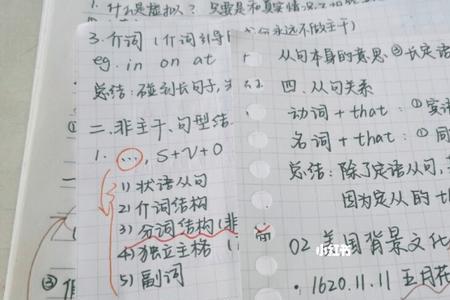 1. 什么是虚拟? 只要是和真实情况
3. 介词 (介词引导
永远不做主干)
eg. in on at
总结: 碰到长句子, 先
二. 非主干、句型结
1. ..., S+V+O
1) 状语从句
2) 介词结构
3) 分词结构 (非
4) 独立主格 (
5) 副词
从句本身的意思 ③ 长定语
四. 从句关系
动词 + that: ① 宾语
名词 + that: ① 同
总结: 除了定语从句,
因为定从的 th
02 美国背景文化
小红书
· 1620.11.11 五月花